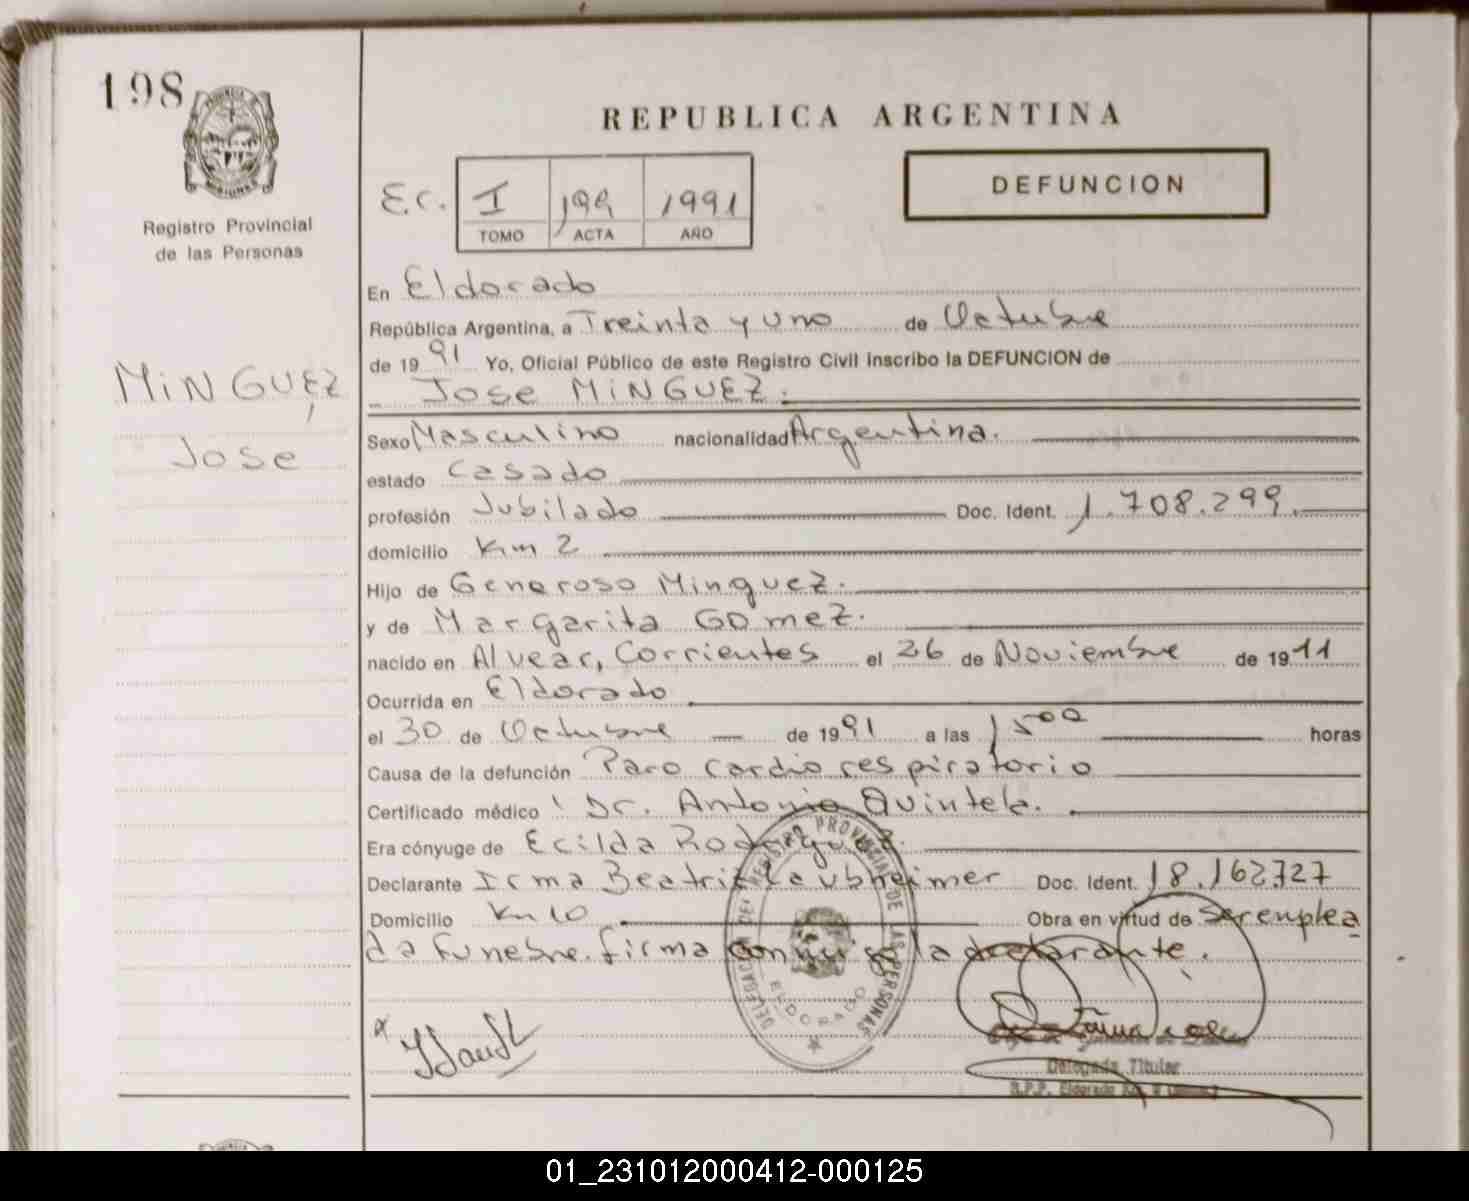 198
REPUBLICA ARGENTINA
DEFUNCION
E.C. I 199 1991
TOMO ACTA AÑO
Registro Provincial
de las Personas
MINGUEZ,
Jose
En Eldorado
República Argentina, a Treinta y uno de Octubre
de 1991 Yo, Oficial Público de este Registro Civil inscribo la DEFUNCION de
Jose MINGUEZ.
Sexo Masculino nacionalidad Argentina.
estado Casado
profesión Jubilado Doc. Ident. 1.708.299.
domicilio Km 2
Hijo de Generoso Minguez.
y de Margarita GOmez.
nacido en Alvear, Corrientes el 26 de Noviembre de 1911
Ocurrida en Eldorado
el 30 de Octubre de 1991 a las 1500 horas
Causa de la defunción Paro cardio respiratorio
Certificado médico Dr. Antonio Quintela.
Era cónyuge de Ecilda Rodriguez.
Declarante Irma Beatriz Laubheimer Doc. Ident. 18.162.727
Domicilio Km 10 Obra en virtud de ser emplea
da funebre. firma conmigo la declarante.
DELEGACION DEL REGISTRO PROVINCIAL DE LAS PERSONAS
ELDORADO
Delegada Titular
R.P.P. Eldorado
01_231012000412-000125